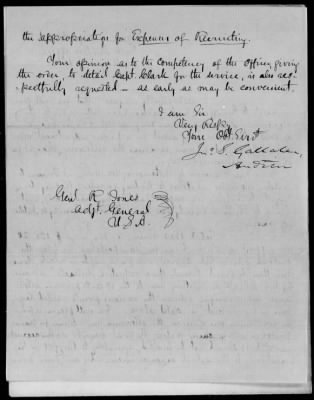 the appropriation for Expenses of Recruiting.
Your opinion as to the Competency of the Officer giving
the order, to detail Capt. Clark for the service, is also res-
pectfully requested – as early as may be convenient
I am Sir
Very Respy
Your Obt Servt
Jno S. Gallaher,
Auditor
Genl R. Jones
Adjt. General
U.S.A.